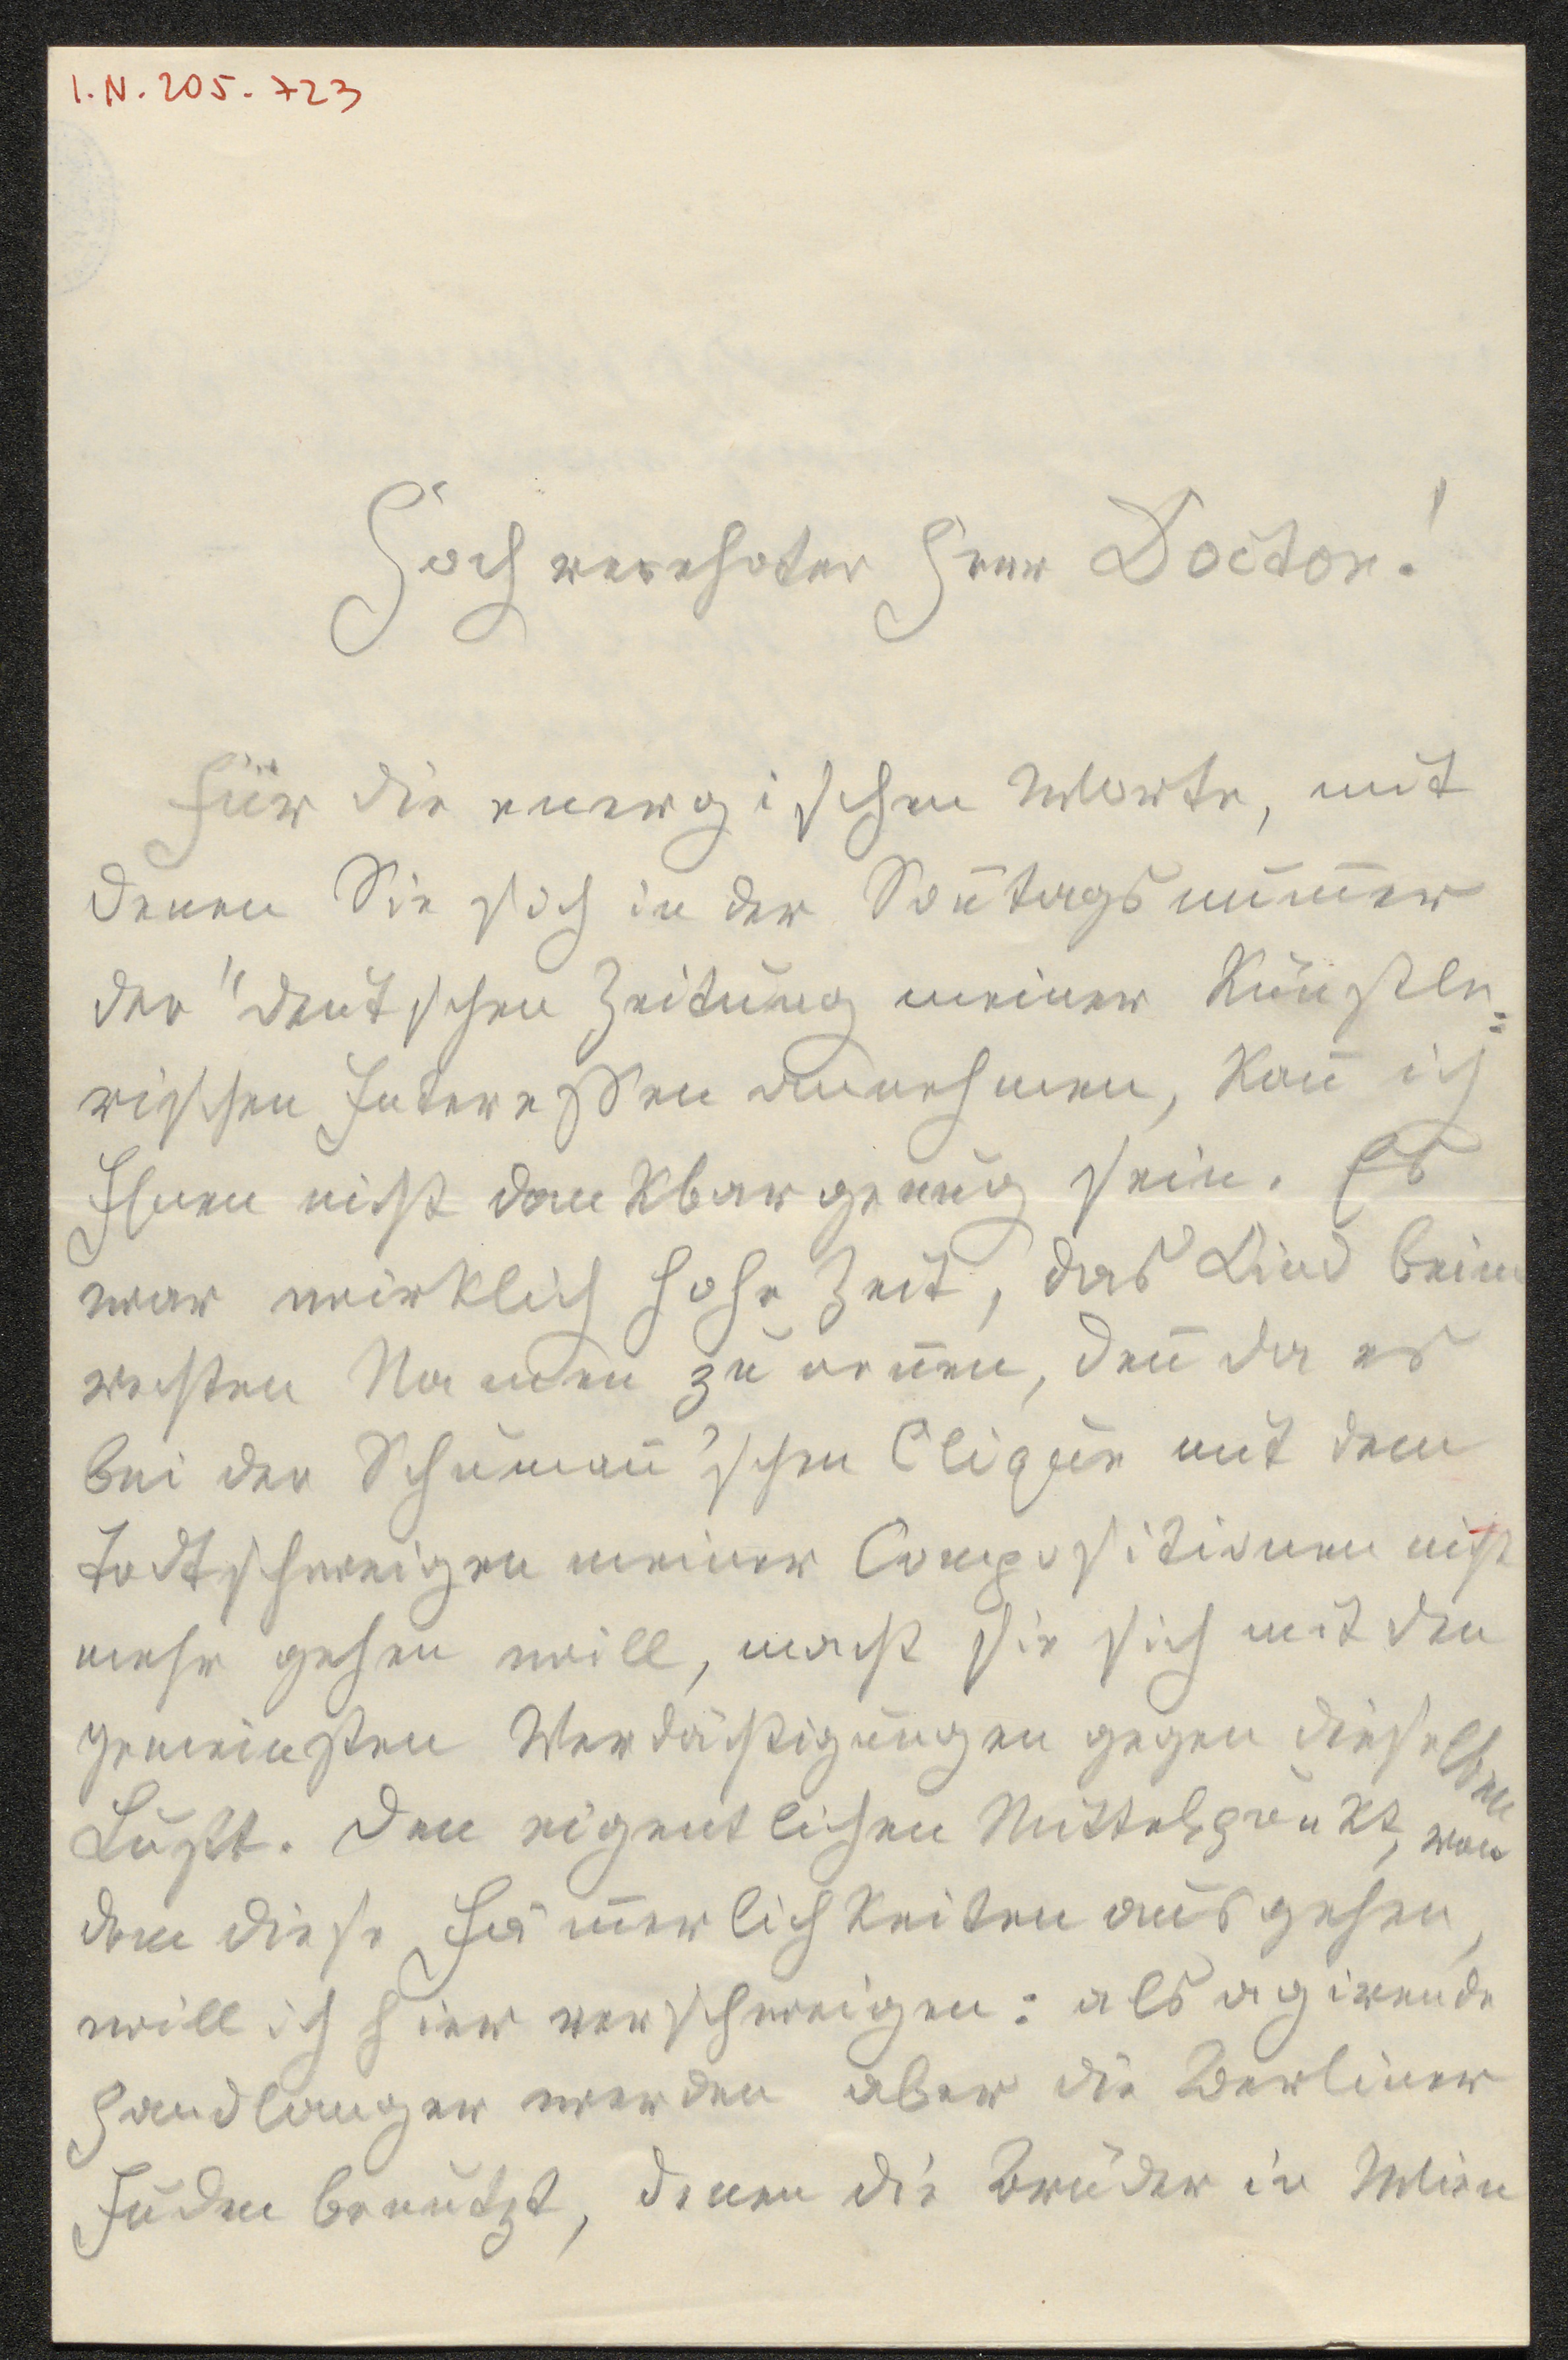 I.N. 205.723
Hochverehrter Herr Doctor!
Für die energischen Worte, mit
denen Sie sich in der Soñtagsnum̄er
der "deutschen Zeitung meiner Künstle=
rischen Interessen annehmen, kañ ich
Ihnen nicht dankbar genug sein. Es
war wirklich hohe Zeit, das Kind beim
rechten Namen zu neñen, deñ da es
bei der Schumañ'schen Clique mit dem
Todtschweigen meiner Compositionen nicht
mehr gehen will, macht sie sich mit den
gemeinsten Verdächtigungen gegen dieselben
Luft. Den eigentlichen Mittelpunkt, von
dem diese Jäm̄erlichkeiten ausgehen,
will ich hier verschweigen: als agirende
Handlanger werden aber die Berliner
Juden benützt, denen die Brüder in Wien